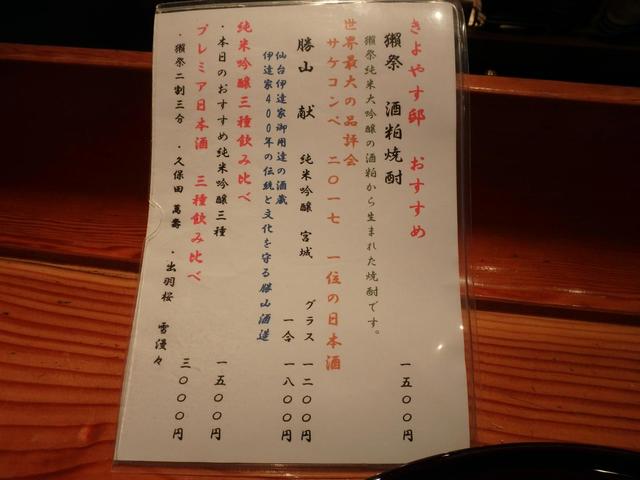 きよやす邸 おすすめ
獺祭 酒粕焼酎 一五〇〇円
獺祭純米大吟醸の酒粕から生まれた焼酎です。
世界最大の品評会
サケコンペ 二〇一七 一位の日本酒
勝山 献 純米吟醸 宮城 グラス 一二〇〇円
一合 一八〇〇円
仙台伊達家御用達の酒蔵
伊達家400年の伝統と文化を守る勝山酒造
純米吟醸三種飲み比べ
・本日のおすすめ純米吟醸三種 一五〇〇円
プレミア日本酒 三種飲み比べ
・獺祭二割三分 ・久保田 萬寿 ・出羽桜 雪漫々 三〇〇〇円